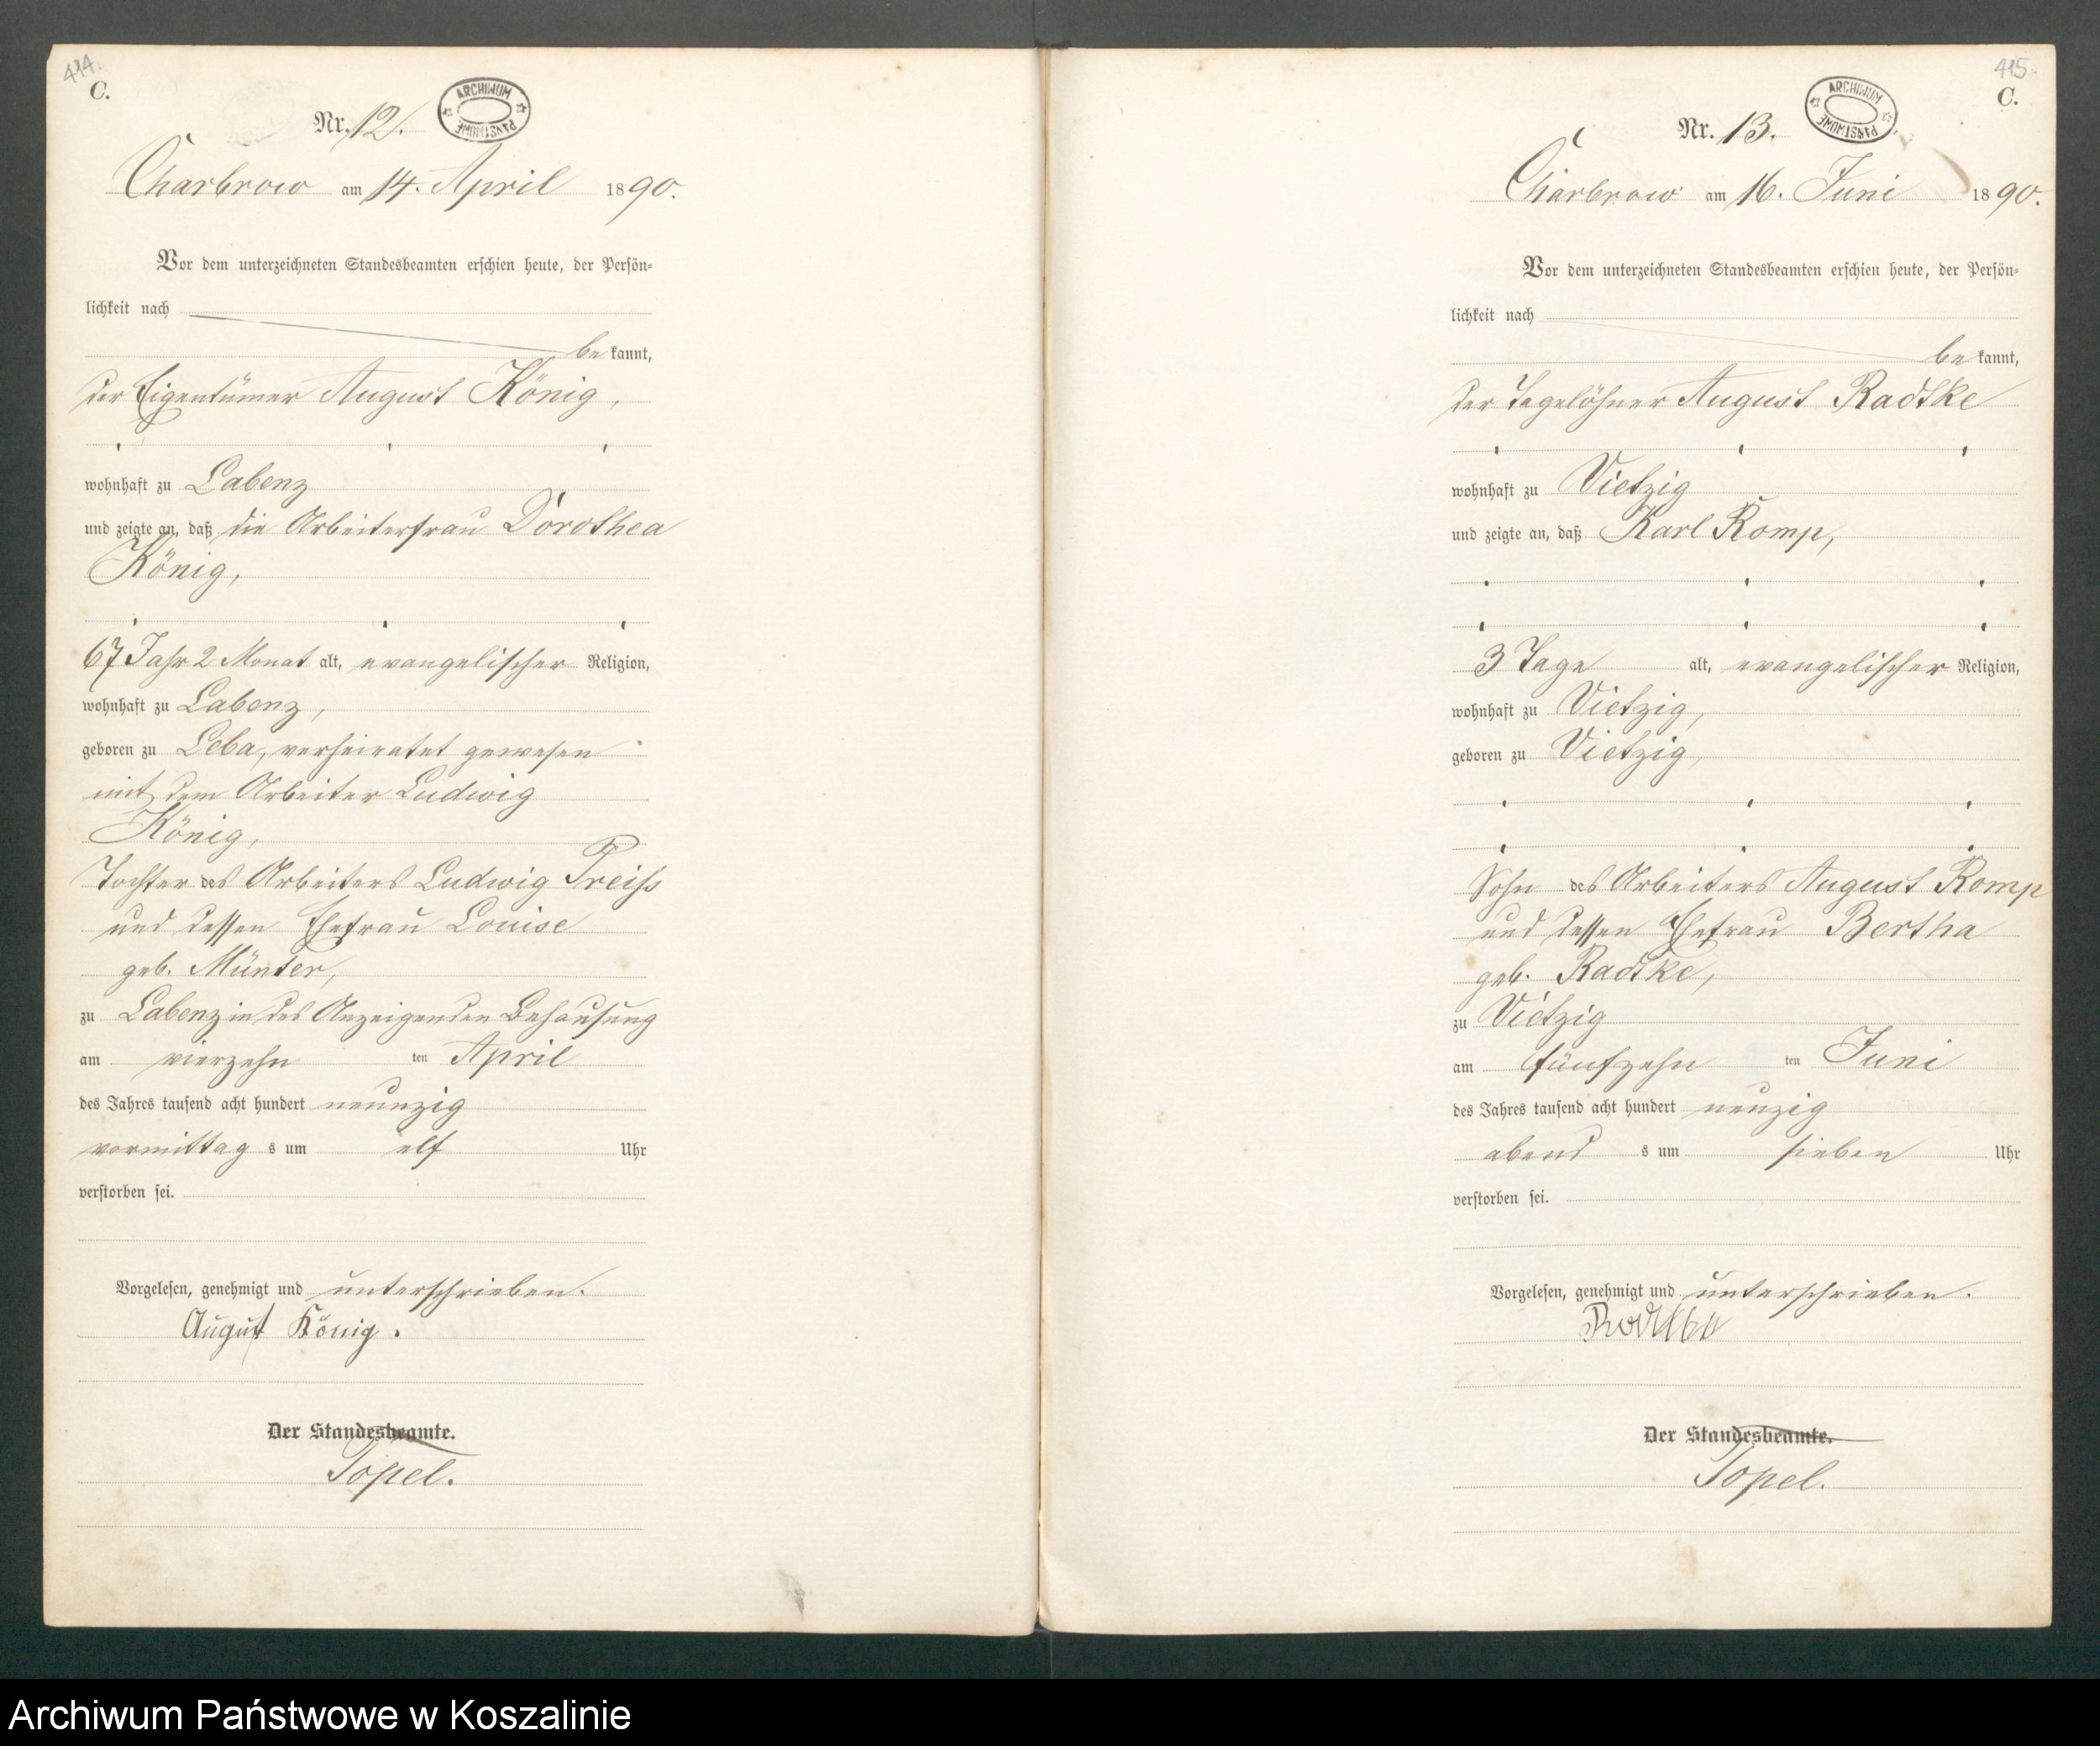 414.
C.
ARCHIWUM PAŃSTWOWE
Nr. 12.
Charbrow am 14. April 1890.
Vor dem unterzeichneten Standesbeamten erschien heute, der Persön-
lichkeit nach
be kannt,
der Eigentümer August König,
wohnhaft zu Labenz
und zeigte an, daß die Arbeiterfrau Dorothea
König,
67 Jahr 2 Monat alt, evangelischer Religion,
wohnhaft zu Labenz,
geboren zu Leba, verheiratet gewesen
mit dem Arbeiter Ludwig
König,
Tochter des Arbeiters Ludwig Preiss
und dessen Ehefrau Louise
geb. Münter,
zu Labenz in des Anzeigenden Behausung
am vierzehn ten April
des Jahres tausend acht hundert neunzig
vormittag s um elf Uhr
verstorben sei.
Vorgelesen, genehmigt und unterschrieben.
August König.
Der Standesbeamte.
Topel.
415.
C.
ARCHIWUM PAŃSTWOWE
Nr. 13.
Charbrow am 16. Juni 1890.
Vor dem unterzeichneten Standesbeamten erschien heute, der Persön-
lichkeit nach
be kannt,
der Tagelöhner August Radtke
wohnhaft zu Vietzig
und zeigte an, daß Karl Romp,
3 Tage alt, evangelischer Religion,
wohnhaft zu Vietzig,
geboren zu Vietzig,
Sohn des Arbeiters August Romp
und dessen Ehefrau Bertha
geb. Radtke,
zu Vietzig
am fünfzehn ten Juni
des Jahres tausend acht hundert neunzig
abend s um sieben Uhr
verstorben sei.
Vorgelesen, genehmigt und unterschrieben.
Radtke
Der Standesbeamte.
Topel.
Archiwum Państwowe w Koszalinie